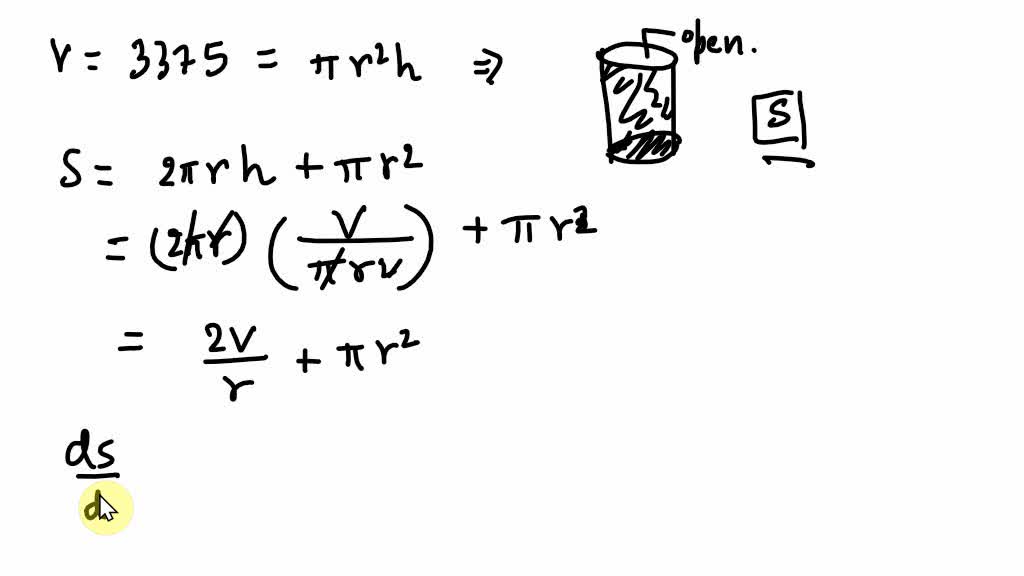 V = 3375 = πr²h ⇒
open.
S
S = 2πrh + πr²
= (2πr) (V/πr²) + πr²
= 2V/r + πr²
ds
d